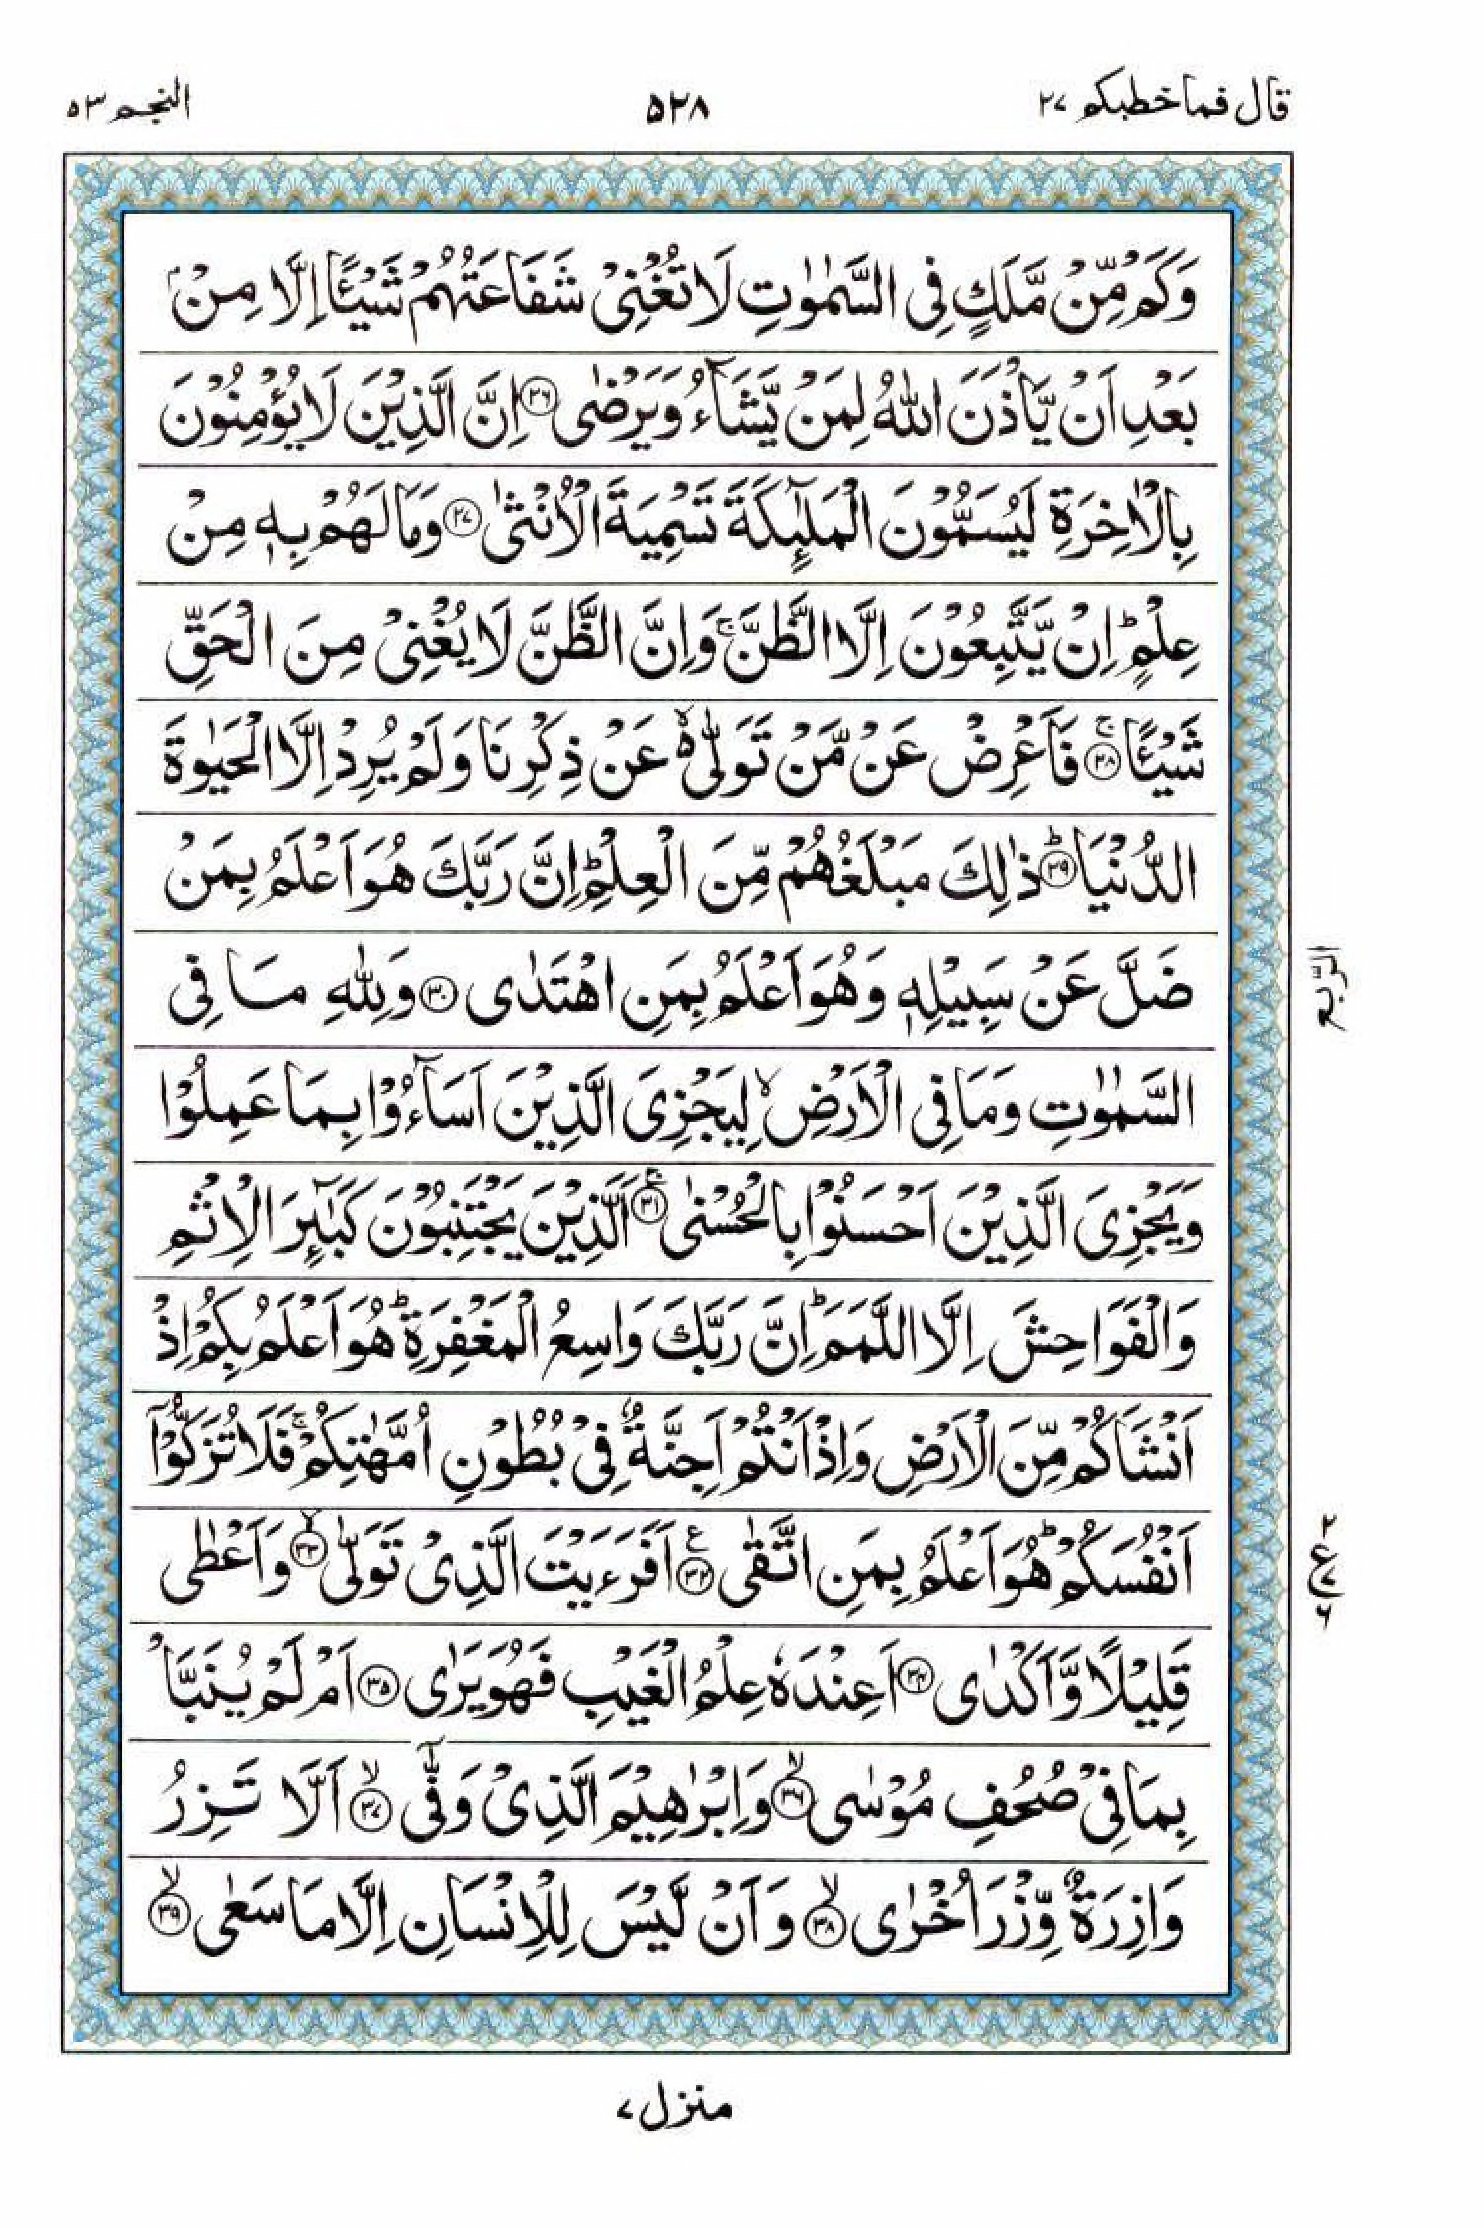 قال فماخطبكم ٢٧
٥٢٨
النجم ٥٣
وَكَمْ مِّنْ مَّلَكٍ فِي السَّمٰوٰتِ لَا تُغْنِيْ شَفَاعَتُهُمْ شَيْـًٔا اِلَّا مِنْۢ
بَعْدِ اَنْ يَّاْذَنَ اللّٰهُ لِمَنْ يَّشَآءُ وَيَرْضٰى ﴿٢٦﴾ اِنَّ الَّذِيْنَ لَا يُؤْمِنُوْنَ
بِالْاٰخِرَةِ لَيُسَمُّوْنَ الْمَلٰٓئِكَةَ تَسْمِيَةَ الْاُنْثٰى ﴿٢٧﴾ وَمَا لَهُمْ بِهٖ مِنْ
عِلْمٍ ؕ اِنْ يَّتَّبِعُوْنَ اِلَّا الظَّنَّ ۚ وَاِنَّ الظَّنَّ لَا يُغْنِيْ مِنَ الْحَقِّ
شَيْـًٔا ۚ ﴿٢٨﴾ فَاَعْرِضْ عَنْ مَّنْ تَوَلّٰى ۙ۬ عَنْ ذِكْرِنَا وَلَمْ يُرِدْ اِلَّا الْحَيٰوةَ
الدُّنْيَا ؕ ﴿٢٩﴾ ذٰلِكَ مَبْلَغُهُمْ مِّنَ الْعِلْمِ ؕ اِنَّ رَبَّكَ هُوَ اَعْلَمُ بِمَنْ
ضَلَّ عَنْ سَبِيْلِهٖ وَهُوَ اَعْلَمُ بِمَنِ اهْتَدٰى ﴿٣٠﴾ وَلِلّٰهِ مَا فِي
الرّبع
السَّمٰوٰتِ وَمَا فِي الْاَرْضِ ۙ لِيَجْزِيَ الَّذِيْنَ اَسَآءُوْا بِمَا عَمِلُوْا
وَيَجْزِيَ الَّذِيْنَ اَحْسَنُوْا بِالْحُسْنٰى ۚ ﴿٣١﴾ اَلَّذِيْنَ يَجْتَنِبُوْنَ كَبٰٓئِرَ الْاِثْمِ
وَالْفَوَاحِشَ اِلَّا اللَّمَمَ ؕ اِنَّ رَبَّكَ وَاسِعُ الْمَغْفِرَةِ ؕ هُوَ اَعْلَمُ بِكُمْ اِذْ
اَنْشَاَكُمْ مِّنَ الْاَرْضِ وَاِذْ اَنْتُمْ اَجِنَّةٌ فِيْ بُطُوْنِ اُمَّهٰتِكُمْ ۚ فَلَا تُزَكُّوْٓا
اَنْفُسَكُمْ ؕ هُوَ اَعْلَمُ بِمَنِ اتَّقٰى ﴿٣٢﴾ ع اَفَرَءَيْتَ الَّذِيْ تَوَلّٰى ۙ ﴿٣٣﴾ وَاَعْطٰى
٢
ع
٦
قَلِيْلًا وَّاَكْدٰى ﴿٣٤﴾ اَعِنْدَهٗ عِلْمُ الْغَيْبِ فَهُوَ يَرٰى ﴿٣٥﴾ اَمْ لَمْ يُنَبَّاْ
بِمَا فِيْ صُحُفِ مُوْسٰى ۙ ﴿٣٦﴾ وَاِبْرٰهِيْمَ الَّذِيْ وَفّٰٓى ۙ ﴿٣٧﴾ اَلَّا تَزِرُ
وَازِرَةٌ وِّزْرَ اُخْرٰى ۙ ﴿٣٨﴾ وَاَنْ لَّيْسَ لِلْاِنْسَانِ اِلَّا مَا سَعٰى ۙ ﴿٣٩﴾
منزل ٧